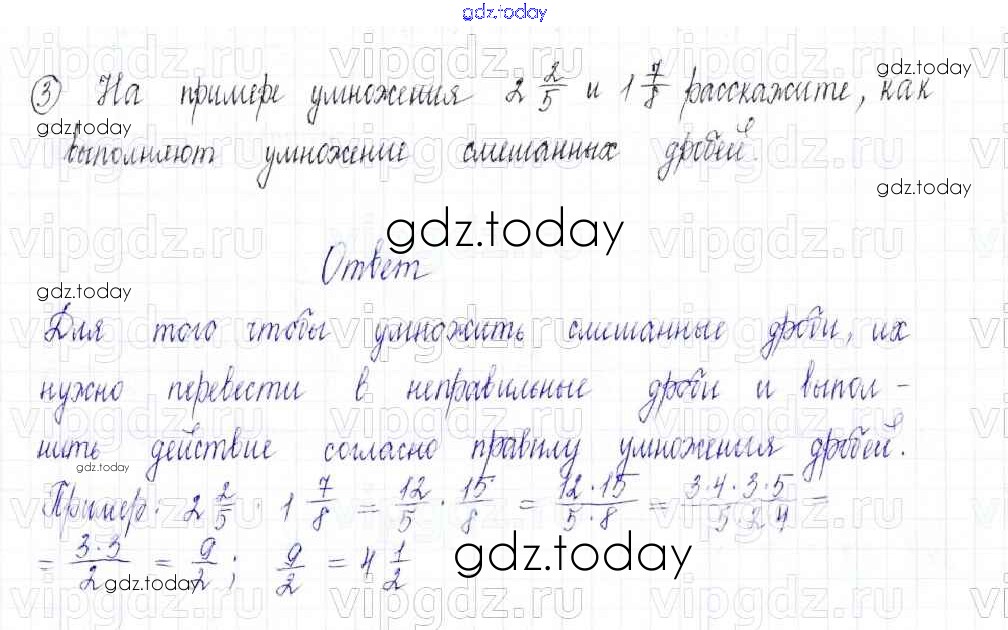 gdz.today
③ На примере умножения 2 2/5 и 1 7/8 расскажите, как
gdz.today
gdz.today
выполняют умножение смешанных дробей.
gdz.today
gdz.today
Ответ
gdz.today
Для того чтобы умножить смешанные дроби, их
нужно перевести в неправильные дроби и выпол-
нить действие согласно правилу умножения дробей.
gdz.today
Пример: 2 2/5 · 1 7/8 = 12/5 · 15/8 = 12·15/5·8 = 3·4·3·5/5·2·4 =
= 3·3/2 = 9/2; 9/2 = 4 1/2
gdz.today
gdz.today
vipgdz.ru